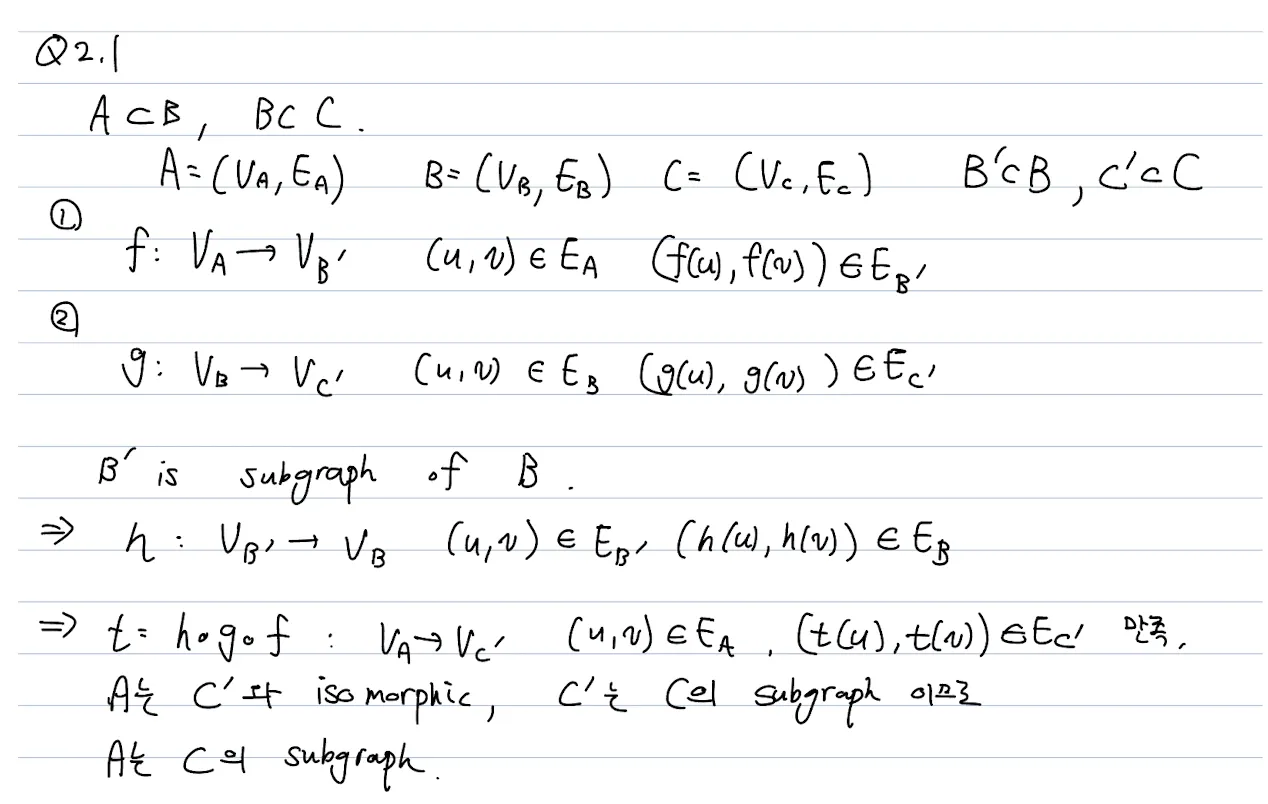 Q2.1
A⊂B, B⊂C.
A=(V_A, E_A) B=(V_B, E_B) C=(V_C, E_C) B'⊂B, C'⊂C
①
f: V_A → V_B' (u,v) ∈ E_A (f(u), f(v)) ∈ E_B'
②
g: V_B → V_C' (u,v) ∈ E_B (g(u), g(v)) ∈ E_C'
B' is subgraph of B.
⇒ h: V_B' → V_B (u,v) ∈ E_B' (h(u), h(v)) ∈ E_B
⇒ t = h∘g∘f : V_A → V_C' (u,v) ∈ E_A, (t(u), t(v)) ∈ E_C' 만족.
A는 C'와 isomorphic, C'는 C의 subgraph 이므로
A는 C의 subgraph.